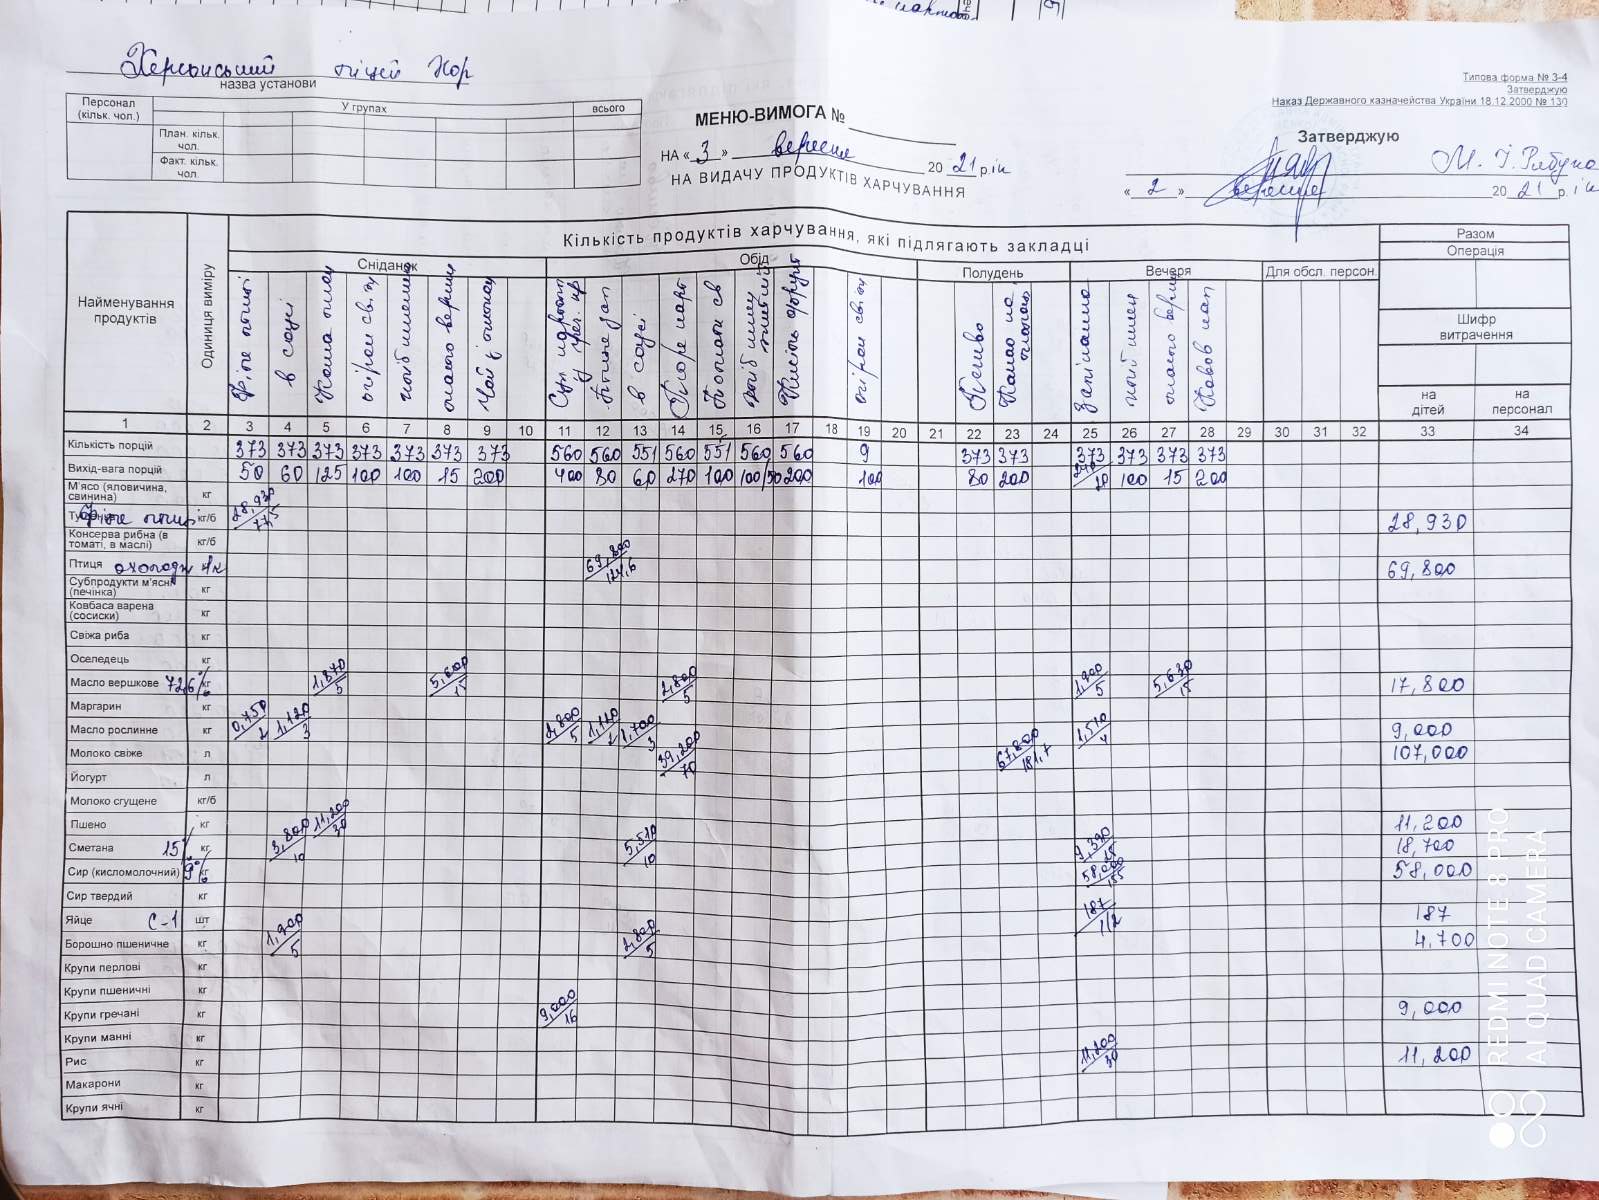 Херсонський ліцей ХОР
назва установи
Типова форма № З-4
Затверджую
Наказ Державного казначейства України 18.12.2000 № 130
Персонал (кільк. чол.) У групах всього
План. кільк. чол.
Факт. кільк. чол.
МЕНЮ-ВИМОГА №
НА « 3 » вересня 20 21 рік
НА ВИДАЧУ ПРОДУКТІВ ХАРЧУВАННЯ
Затверджую
« 2 » вересня 20 21 рік
Найменування продуктів
Одиниця виміру
Кількість продуктів харчування, які підлягають закладці
Разом
Операція
Шифр витрачення
на дітей на персонал
Сніданок Обід Полудень Вечеря Для обсл. персон.
Філе птиці
в соусі
Каша
огірок свіж
хліб
масло вершк
Чай з
Суп
Птиця зап
в соусі
Пюре карт
св
хліб
огірок свіж
Печиво
Какао на
Запіканка
масло верш
1 2 3 4 5 6 7 8 9 10 11 12 13 14 15 16 17 18 19 20 21 22 23 24 25 26 27 28 29 30 31 32 33 34
Кількість порцій 373 373 373 373 373 373 373 560 560 551 560 551 560 560 9 373 373 373 373 373 373
Вихід-вага порцій 50 60 125 100 100 15 200 400 80 60 270 100 100/50 200 100 80 200 240/20 100 15 200
М'ясо (яловичина, свинина) кг
Філе птиці кг/б 28,930/77,5 28,930
Консерва рибна (в томаті, в маслі) кг/б
Птиця охолодж 69,800/124,6 69,800
Субпродукти м'ясні (печінка) кг
Ковбаса варена (сосиски) кг
Свіжа риба кг
Оселедець кг
Масло вершкове 72,6% кг 1,870/5 5,600/15 2,800/5 1,900/5 5,630/15 17,800
Маргарин кг
Масло рослинне кг 0,750/2 1,120/3 2,800/5 1,120/2 1,700/3 1,510/4 9,000
Молоко свіже л 39,200/70 67,800/181,7 107,000
Йогурт л
Молоко сгущене кг/б
Пшено кг 11,200/30 11,200
Сметана 15% кг 3,800/10 5,510/10 9,390/25 18,700
Сир (кисломолочний) 9% кг 58,000/155 58,000
Сир твердий кг
Яйце С-1 шт 187/1/2 187
Борошно пшеничне кг 1,900/5 2,800/5 4,700
Крупи перлові кг
Крупи пшеничні кг
Крупи гречані кг 9,000/16 9,000
Крупи манні кг
Рис кг 11,200/30 11,200
Макарони кг
Крупи ячні кг
REDMI NOTE 8 PRO
AI QUAD CAMERA